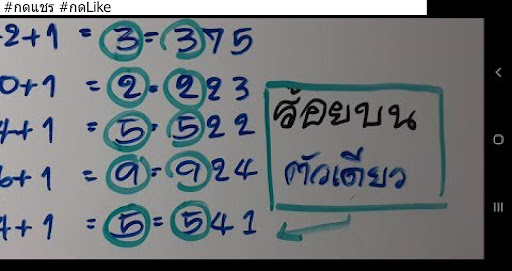 #กดแชร #กดLike
2+1 = 3 = 375
0+1 = 2 = 223
4+1 = 5 = 522
6+1 = 9 = 924
4+1 = 5 = 541
ร้อยบน
ตัวเดียว